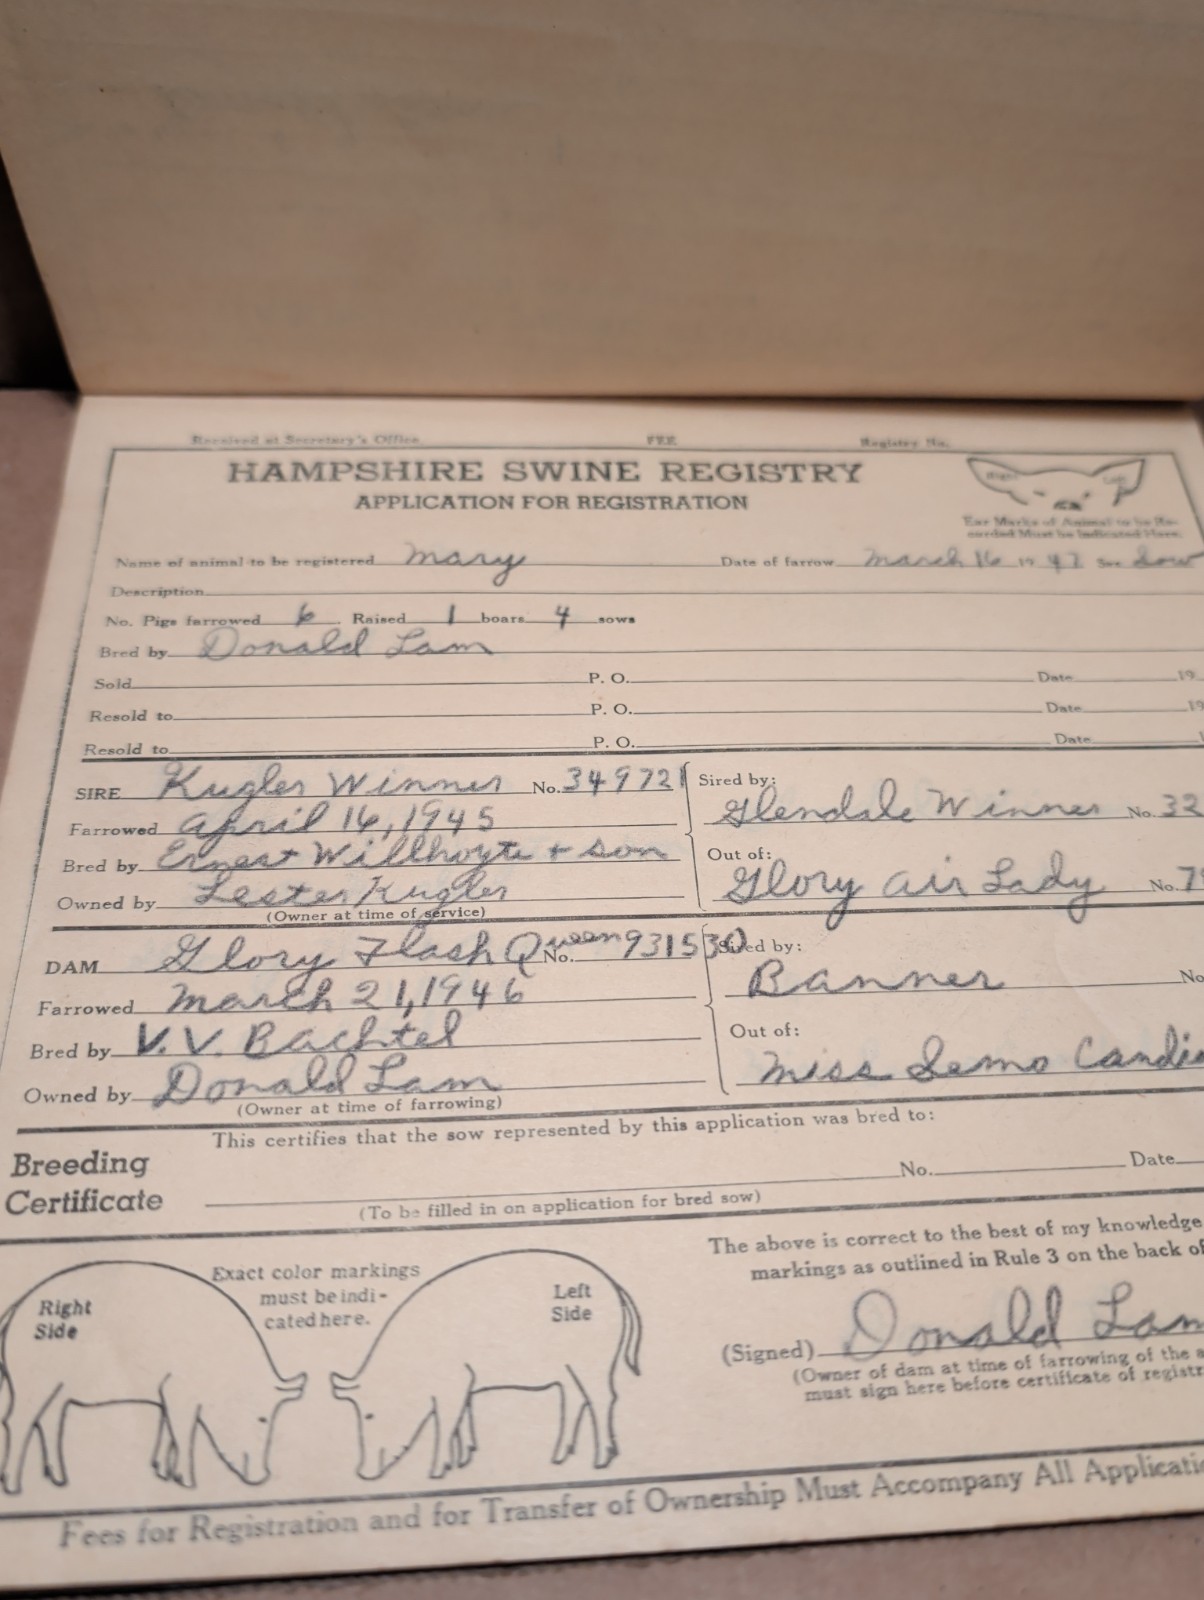 Received at Secretary's Office FEE Registry No.
HAMPSHIRE SWINE REGISTRY
APPLICATION FOR REGISTRATION
Right Left
Ear Marks of Animal to be Re-
corded Must be Indicated Here.
Name of animal to be registered Mary Date of farrow March 16 19 47 Sex Sow
Description
No. Pigs farrowed 6 Raised 1 boars 4 sows
Bred by Donald Lam
Sold P. O. Date 19
Resold to P. O. Date 19
Resold to P. O. Date
SIRE Kugler Winner No. 349721 Sired by:
Farrowed April 16, 1945 Glendale Winner No. 32
Bred by Ernest Willhoyte + Son Out of:
Owned by Lester Kugler Glory Air Lady No. 7
(Owner at time of service)
DAM Glory Flash Queen No. 931530 Sired by:
Farrowed March 21, 1946 Banner No
Bred by V. V. Bachtel Out of:
Owned by Donald Lam Miss Semo
(Owner at time of farrowing)
This certifies that the sow represented by this application was bred to:
Breeding
Certificate No. Date
(To be filled in on application for bred sow)
Right
Side
Exact color markings
must be indi-
cated here.
Left
Side
The above is correct to the best of my knowledge
markings as outlined in Rule 3 on the back of
(Signed) Donald Lam
(Owner of dam at time of farrowing of the a
must sign here before certificate of registr
Fees for Registration and for Transfer of Ownership Must Accompany All Applicatio